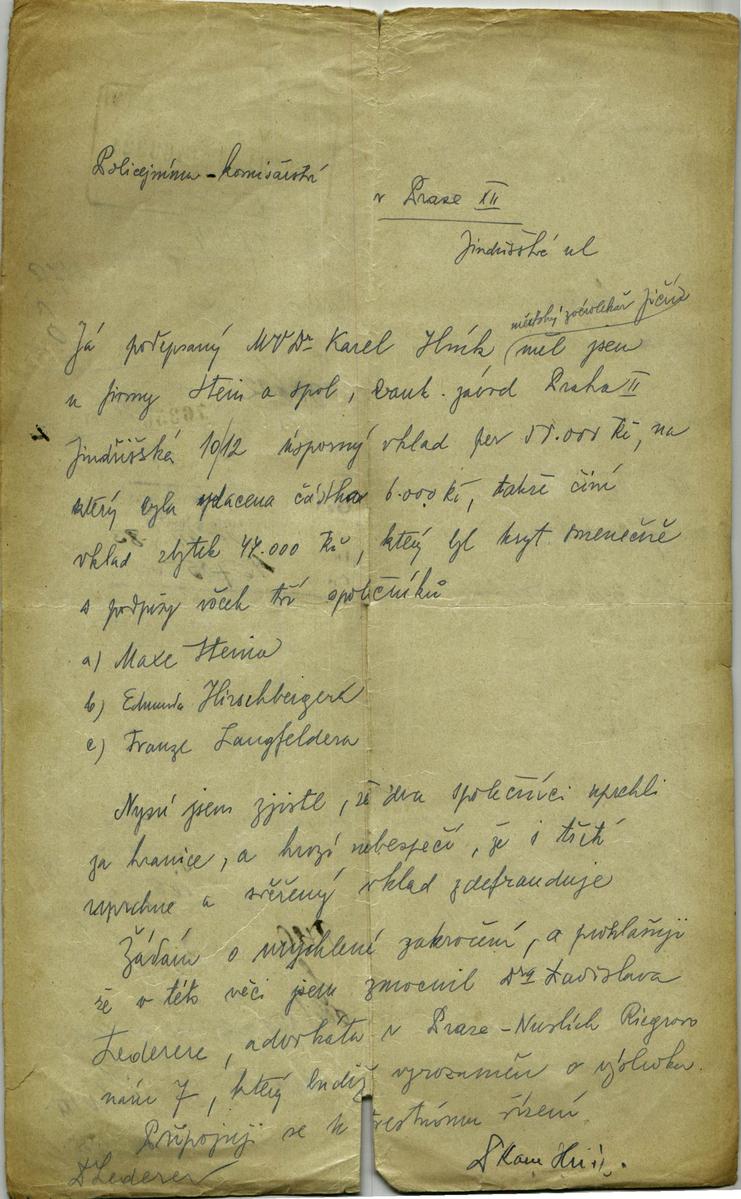 Policejnímu-komisařství
v Praze XII
Jindřišská ul
městský zvěrolékař Jičín
Já podepsaný MVDr Karel Hník (měl jsem
u firmy Stein a spol, bank. závod Praha II
Jindřišská 10/12 úsporný vklad per 55.000 Kč, na
který byla splacena částka 6.000 Kč, takže činí
vklad zbytek 47.000 Kč, který byl kryt směnečně
s podpisy všech tří společníků
a) Maxe Steina
b) Edmunda Hirschbergera
c) Franze Langfeldera
Nyní jsem zjistil, že dva společníci uprchli
za hranice, a hrozí nebezpečí, že i třetí
uprchne a svěřený vklad zdefranduje
Žádám o urychlené zakročení, a prohlašuji
že v této věci jsem zmocnil Dra Ladislava
Lederera, advokáta v Praze-Nuslích Riegrovo
nám 7, který budiž vyrozuměn o výsledku.
Připojuji se k trestnímu řízení
DLederer